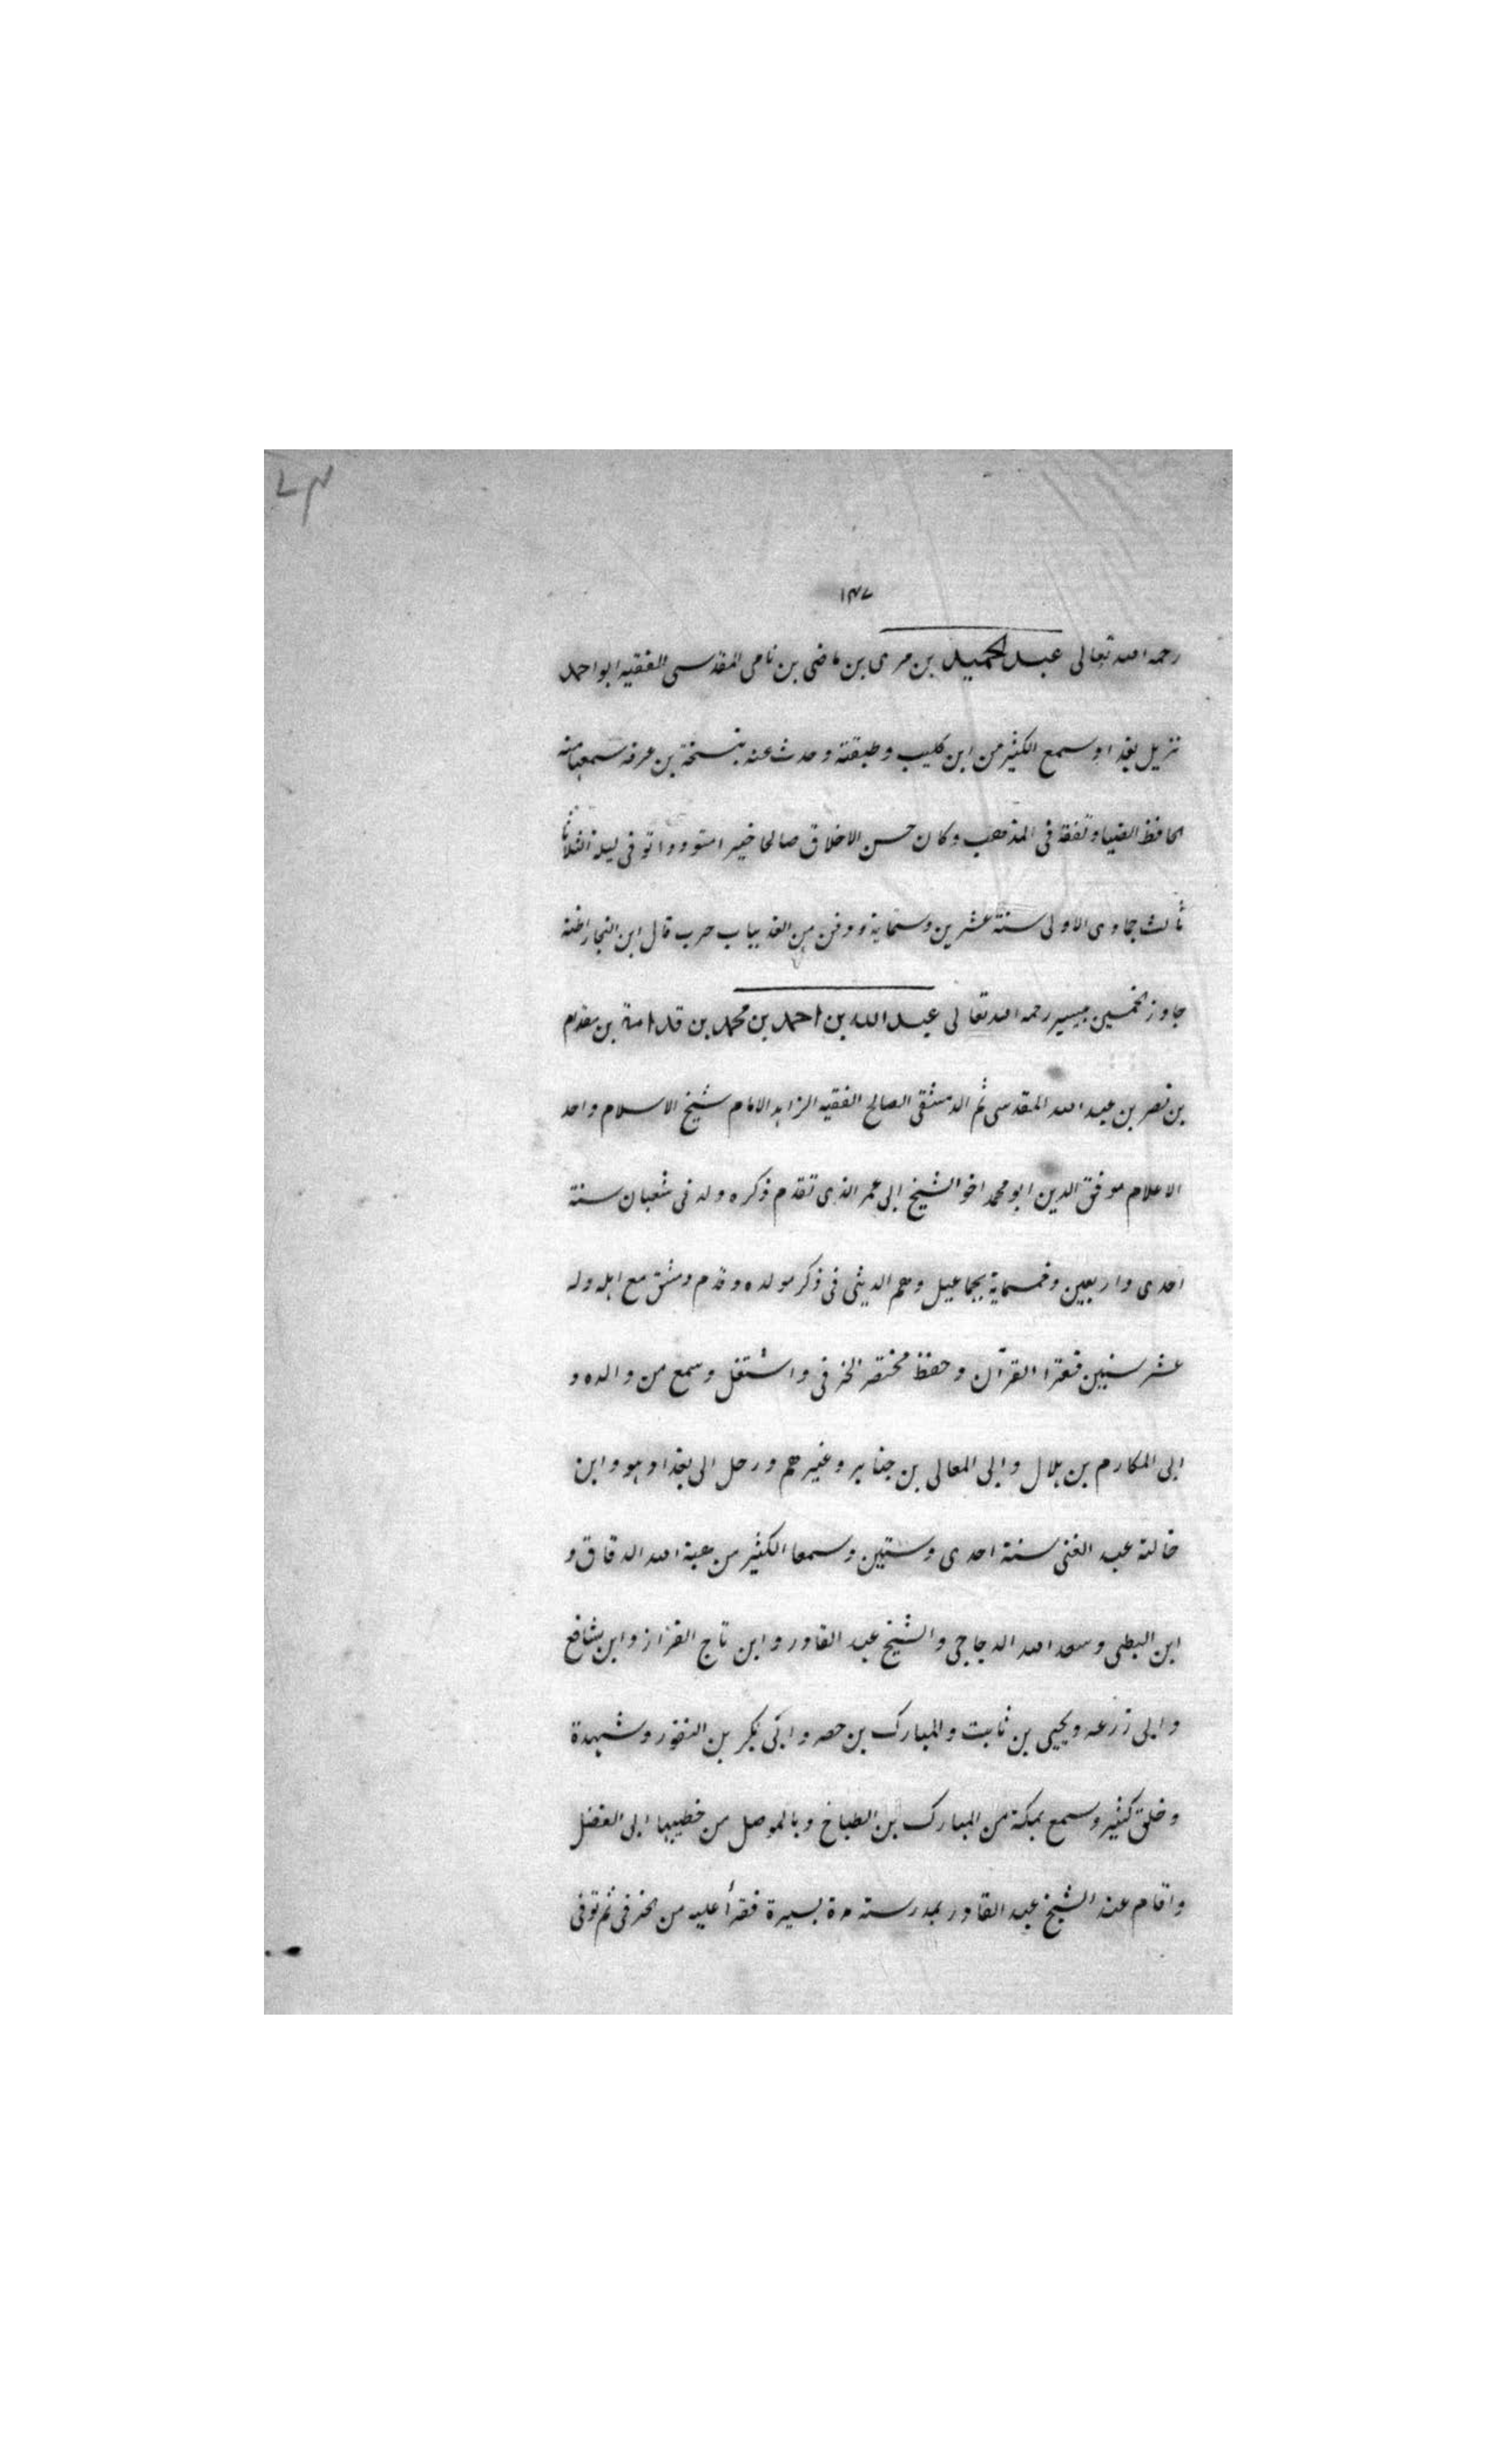 ١٤٧
رحمه الله تعالى عبد الحميد بن مرى بن ماضى بن نامى المقدسى الفقيه ابو احمد
نزيل بغداد وسمع الكثير من ابن كليب وطبقته وحدث عنه بنسخة بن عرفه سمعها منه
الحافظ الضيا وتفقه فى المذهب وكان حسن الاخلاق صالحا خيرا متوددا توفى ليلة الثلاثا
ثالث جمادى الاولى سنة عشرين وستماية ودفن من الغد بباب حرب قال ابن النجار اظنه
جاوز الخمسين بيسير رحمه الله تعالى عبد الله بن احمد بن محمد بن قدامة بن مقدام
بن نصر بن عبد الله المقدسى ثم الدمشقى الصالحى الفقيه الزاهد الامام شيخ الاسلام واحد
الاعلام موفق الدين ابو محمد اخو الشيخ ابى عمر الذى تقدم ذكره ولد فى شعبان سنة
احدى واربعين وخمسماية بجماعيل وهم الدبيثى فى ذكر مولده وقدم دمشق مع اهله وله
عشر سنين فقرا القرآن وحفظ مختصر الخرقى واشتغل وسمع من والده و
ابى المكارم بن هلال وابى المعالى بن صابر وغيرهم ورحل الى بغداد هو وابن
خالته عبد الغنى سنة احدى وستين وسمعا الكثير من هبة الله الدقاق و
ابن البطى وسعد الله الدجاجى والشيخ عبد القادر وابن تاج القزاز وابن شافع
وابى زرعه ويحيى بن ثابت والمبارك بن وابى بكر بن النقور وشهدة
وخلق كثير وسمع بمكة من المبارك بن الطباخ وبالموصل من خطيبها ابى الفضل
واقام عند الشيخ عبد القادر بمدرسته مدة يسيرة فقرأ عليه من الخرقى ثم توفى